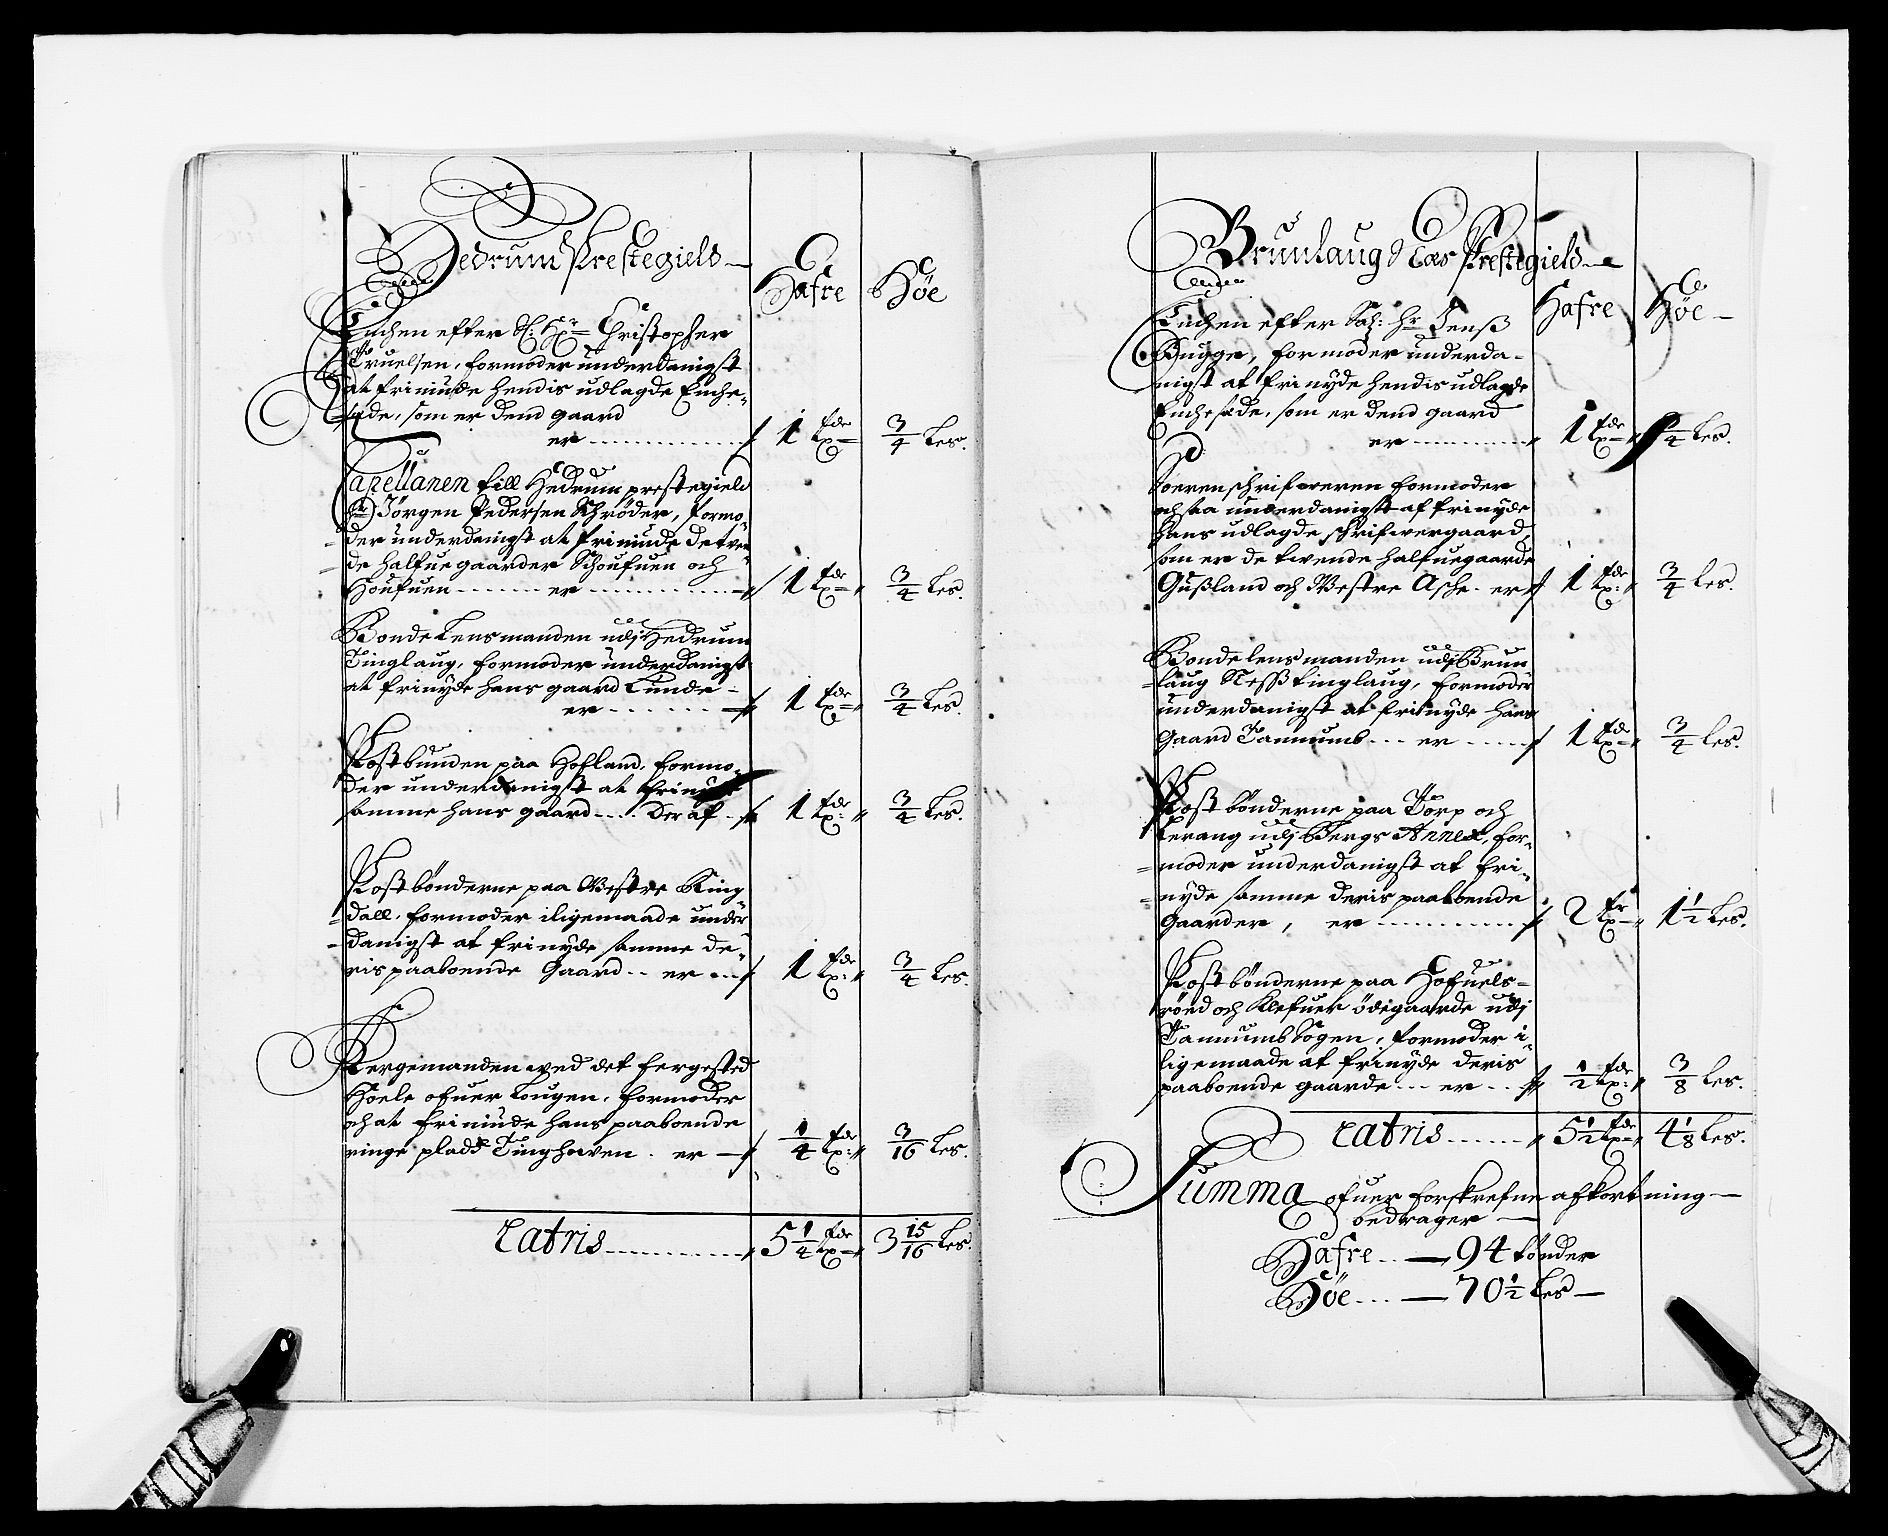 Hedrum Prestegield
Hafre
Høe
Enchen efter Sl: Hr Christopher
Truelsen, formoder underdanigst
at friniude hendis udlagde Enche-
sæde, som er dend gaard
er 1 tde 3/4 Les.
Capellanen till Hedrum prestegield
Hr Jörgen Pedersen Schrøder, formo-
der underdanigst at friniude de tven-
de halfue gaarder Schoufuen och
Houfuen er 1 tde 3/4 Les.
Bonde Lensmanden udj Hedrum
Tinglaug, formoder underdanigst
at frinyde hans gaard Lunde
er 1 tde 3/4 Les.
Postbunden paa Hofland, formo-
der underdanigst at friniude
samme hans gaard Der af 1 tde 3/4 Les.
Postbønderne paa Westre Ring
dall, formoder iligemaade under
danigst at frinyde samme de-
ris paaboende Gaard er 1 tde 3/4 Les.
Fergemanden wed det fergested
Hoele ofuer Lougen, formoder
och at friniude hans paaboende
ringe plads Tinghaven er 1/4 tde 3/16 Les.
Latris 5 1/4 tde 3 15/16 Les.
Brunlaugnæs Prestegield
Hafre
Høe
Enchen efter Sal: Hr Jenss
Bugge, formoder underda-
nigst at frinyde hendis udlagde
Enchesæde, som er dend gaard
er 1 tde 3/4 Les.
Sorenschrifweren formoder
ochsaa underdanigst at frinyde
hans udlagde schrifwergaard
som er de twende halfuegaarde
Gusland och Westre Asche er 1 tde 3/4 Les.
Bondelensmanden udj Brun
laug Ness tinglaug, formoder
underdanigst at frinyde hans
Gaard Tannumb er 1 tde 3/4 Les.
Postbønderne paa Torp och
Lerang udj Bergs Annex, for-
moder underdanigst at fri-
nyde samme deris paaboende
Gaarder, er 2 tr 1 1/2 Les.
Postbønderne paa Hofuels-
röed och Klefuer ödegaarde udj
Tannumb Sogen, formoder i-
ligemaade at frinyde deris
paaboende gaarde er 1/2 tde 3/8 Les.
Latris 5 1/2 tde 4 1/8 Les.
Summa ofuer forskrefne afkortning
bedrager
Hafre 94 tønder
Høe 70 1/2 Les